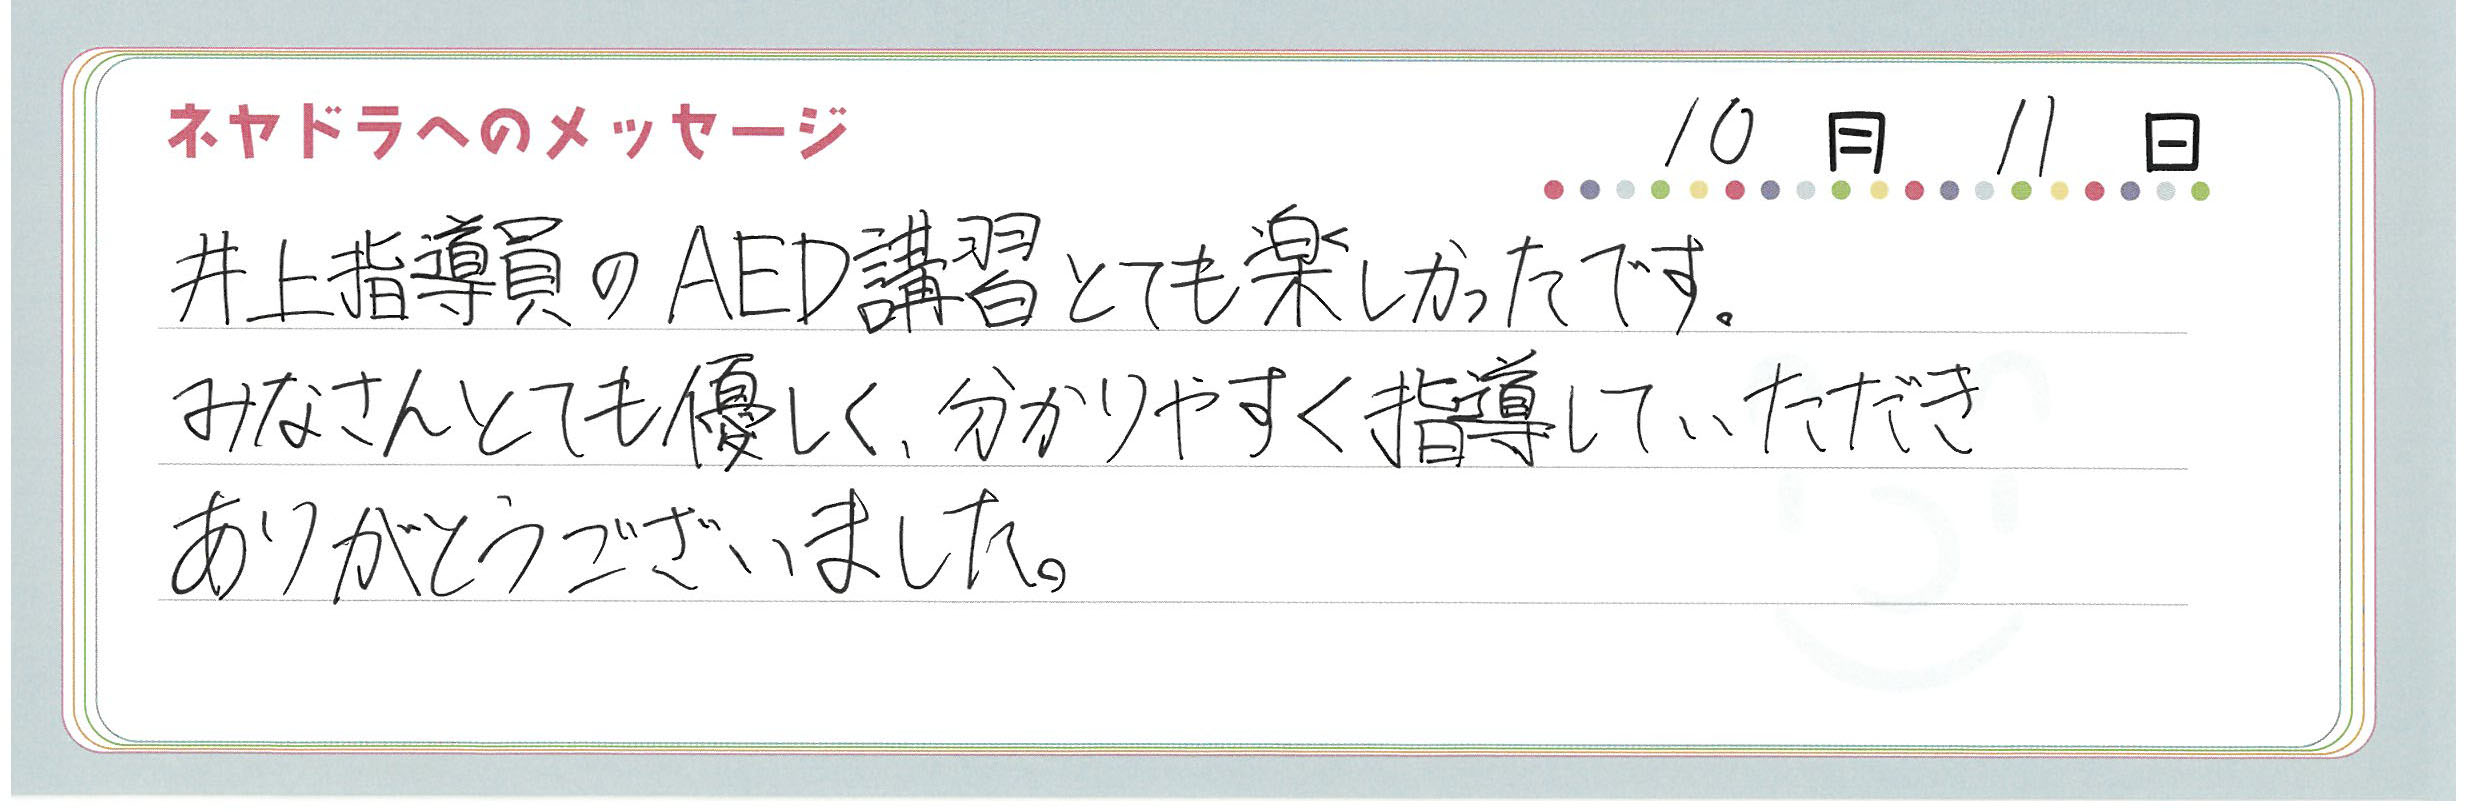 ネヤドラへのメッセージ
10月 11日
井上指導員のAED講習とても楽しかったです。
みなさんとても優しく、分かりやすく指導していただき
ありがとうございました。